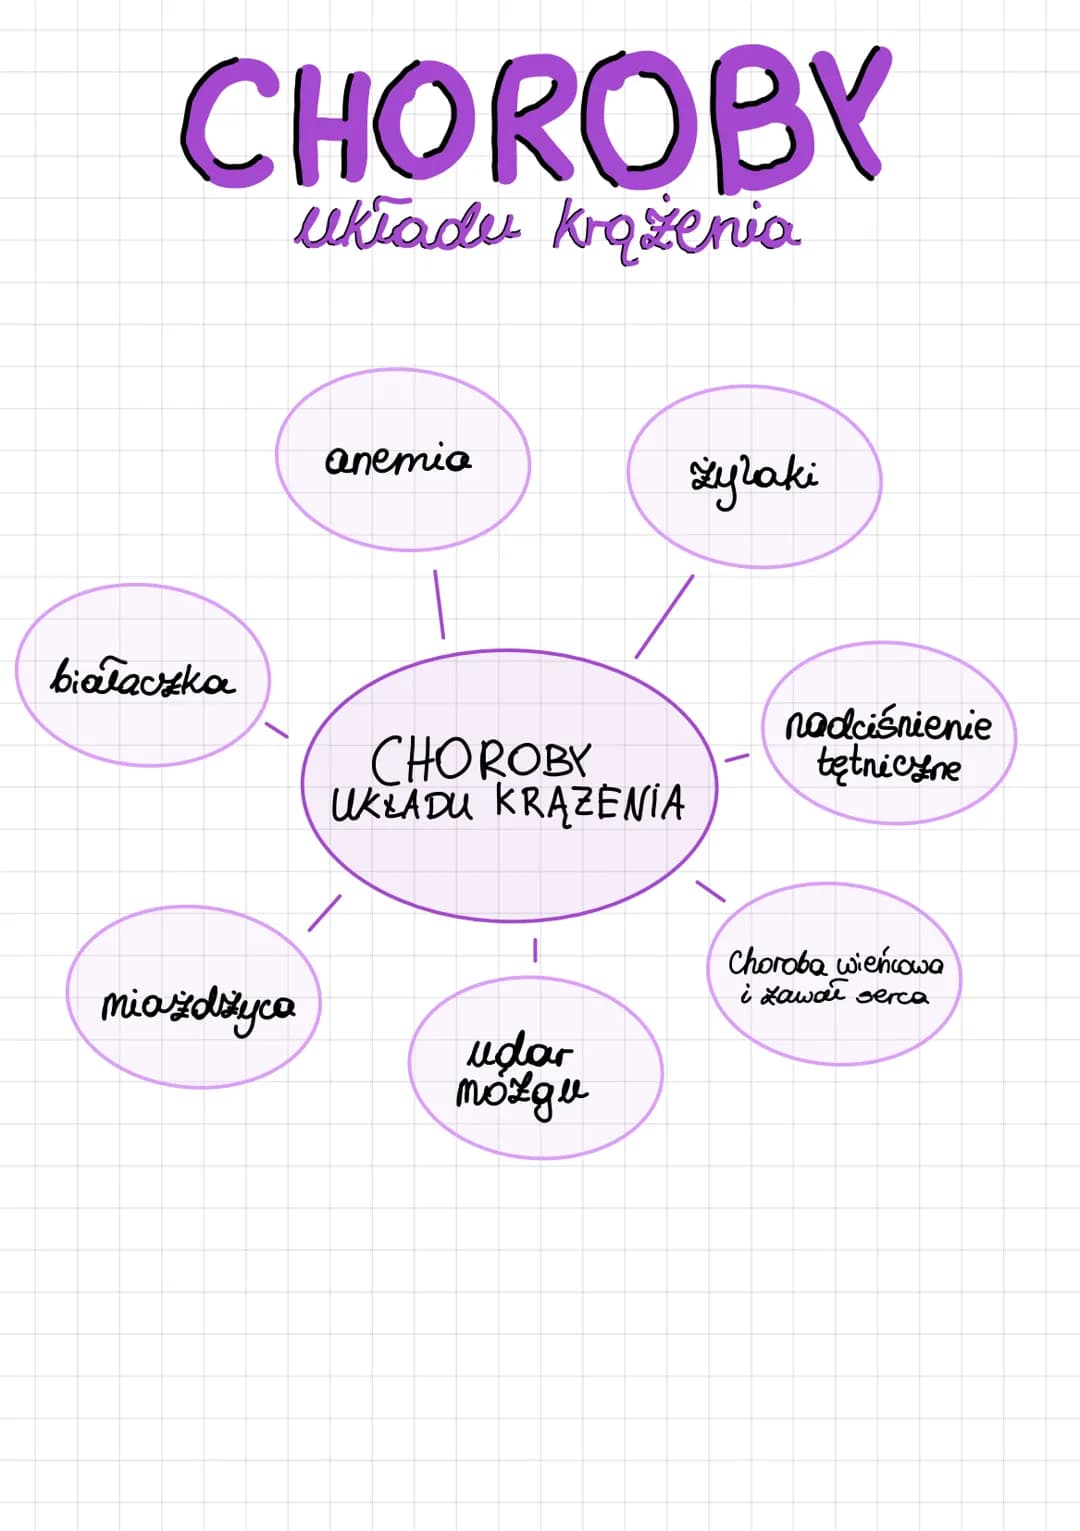 CHOROBY
układu krążenia
anemia
żylaki
białaczka
nadciśnienie
tętnicze
CHOROBY
UKŁADU KRĄŻENIA
Choroba wieńcowa
i zawał serca
miażdżyca
udar
mózgu